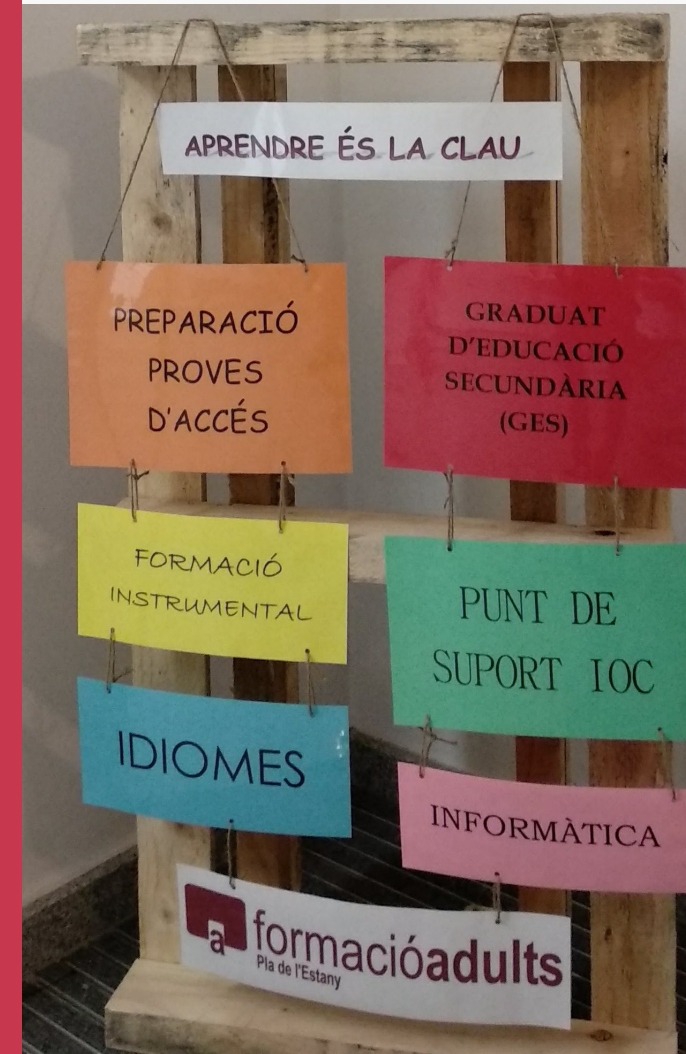 APRENDRE ÉS LA CLAU
PREPARACIÓ
PROVES
D'ACCÉS
FORMACIÓ
INSTRUMENTAL
IDIOMES
GRADUAT
D'EDUCACIÓ
SECUNDÀRIA
(GES)
PUNT DE
SUPORT IOC
INFORMÀTICA
a
formacióadults
Pla de l'Estany